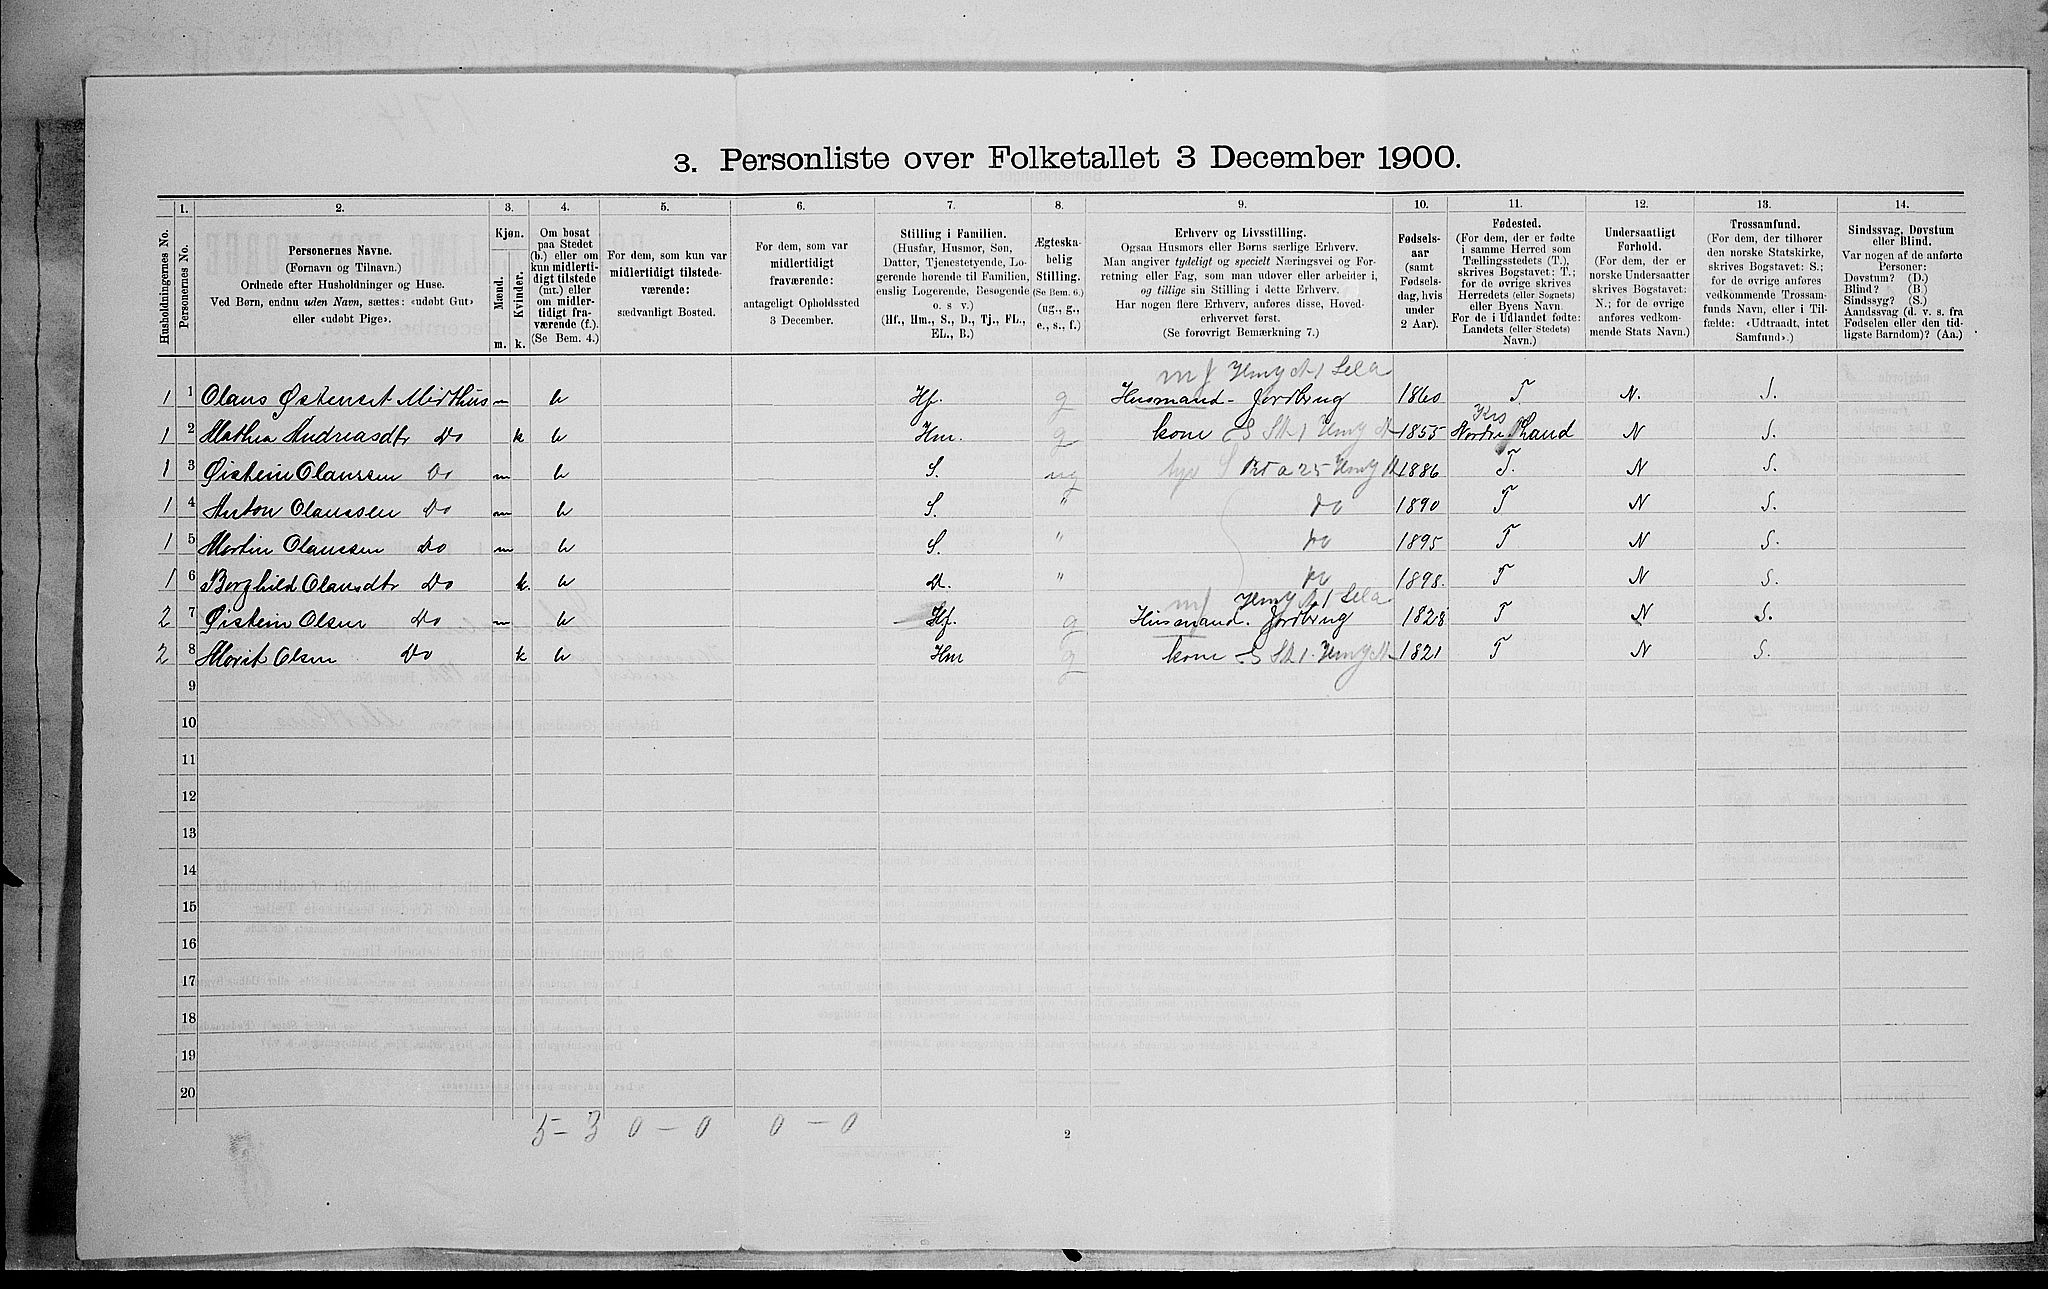 3. Personliste over Folketallet 3 December 1900.
1. 2. 3. 4. 5. 6. 7. 8. 9. 10. 11. 12. 13. 14.
Husholdningernes No.
Personernes No.
Personernes Navne.
(Fornavn og Tilnavn.)
Ordnede efter Husholdninger og Huse.
Ved Børn, endnu uden Navn, sættes: «udøbt Gut»
eller «udøbt Pige».
Kjøn.
Mænd.
Kvinder.
m. k.
Om bosat
paa Stedet
(b.) eller om
kun midlerti-
digt tilstede
(mt.) eller
om midler-
tidigt fra-
værende (f.).
(Se Bem. 4.)
For dem, som kun var
midlertidigt tilstede-
værende:
sædvanligt Bosted.
For dem, som var
midlertidigt
fraværende:
antageligt Opholdssted
3 December.
Stilling i Familien.
(Husfar, Husmor, Søn,
Datter, Tjenestetyende, Lo-
gerende hørende til Familien,
enslig Logerende, Besøgende
o. s. v.)
(Hf., Hm., S., D., Tj., FL.,
EL., B.)
Ægteska-
belig
Stilling.
(Se Bem. 6.)
(ug., g.,
e., s., f.)
Erhverv og Livsstilling.
Ogsaa Husmors eller Børns særlige Erhverv.
Man angiver tydeligt og specielt Næringsvei og For-
retning eller Fag, som man udøver eller arbeider i,
og tillige sin Stilling i dette Erhverv.
Har nogen flere Erhverv, anføres disse, Hoved-
erhvervet først.
(Se forøvrigt Bemærkning 7.)
Fødsels-
aar
(samt
Fødsels-
dag, hvis
under
2 Aar).
Fødested.
(For dem, der er fødte
i samme Herred som
Tællingsstedets (T.),
skrives Bogstavet: T.;
for de øvrige skrives
Herredets (eller Sognets)
eller Byens Navn.
For de i Udlandet fødte:
Landets (eller Stedets)
Navn.)
Undersaatligt
Forhold.
(For dem, der er
norske Undersaatter
skrives Bogstavet:
N.; for de øvrige
anføres vedkom-
mende Stats Navn.)
Trossamfund.
(For dem, der tilhører
den norske Statskirke,
skrives Bogstavet: S.;
for de øvrige anføres
vedkommende Trossam-
funds Navn, eller i Til-
fælde: «Udtraadt, intet
Samfund».)
Sindssvag, Døvstum
eller Blind.
Var nogen af de anførte
Personer:
Døvstum? (D.)
Blind? (B.)
Sindssyg? (S.)
Aandssvag (d. v. s. fra
Fødselen eller den tid-
ligste Barndom)? (Aa.)
1 1 Olaus Østenset Midthus m b Hf. g Husmand - Jordbrug 1860 T N. S.
1 2 Mathea Andreasdtr Do k b Hm. g kone 1855 Nordre Land N S.
1 3 Øistein Olaussen Do m b S. ug 1886 T. N S.
1 4 Anton Olaussen Do m b S. " do 1890 T N S.
1 5 Martin Olaussen Do m b S. " do 1895 T N S.
1 6 Borghild Olausdtr Do k. b D. " do 1898. T N S.
2 7 Øistein Olsen Do m b Hf. g Husmand. Jordbrug 1828 T N S.
2 8 Marit Olsen Do k b Hm g kone 1821 T N S.
9
10
11
12
13
14
15
16
17
18
19
20
5 - 3 0 - 0 0 - 0
2